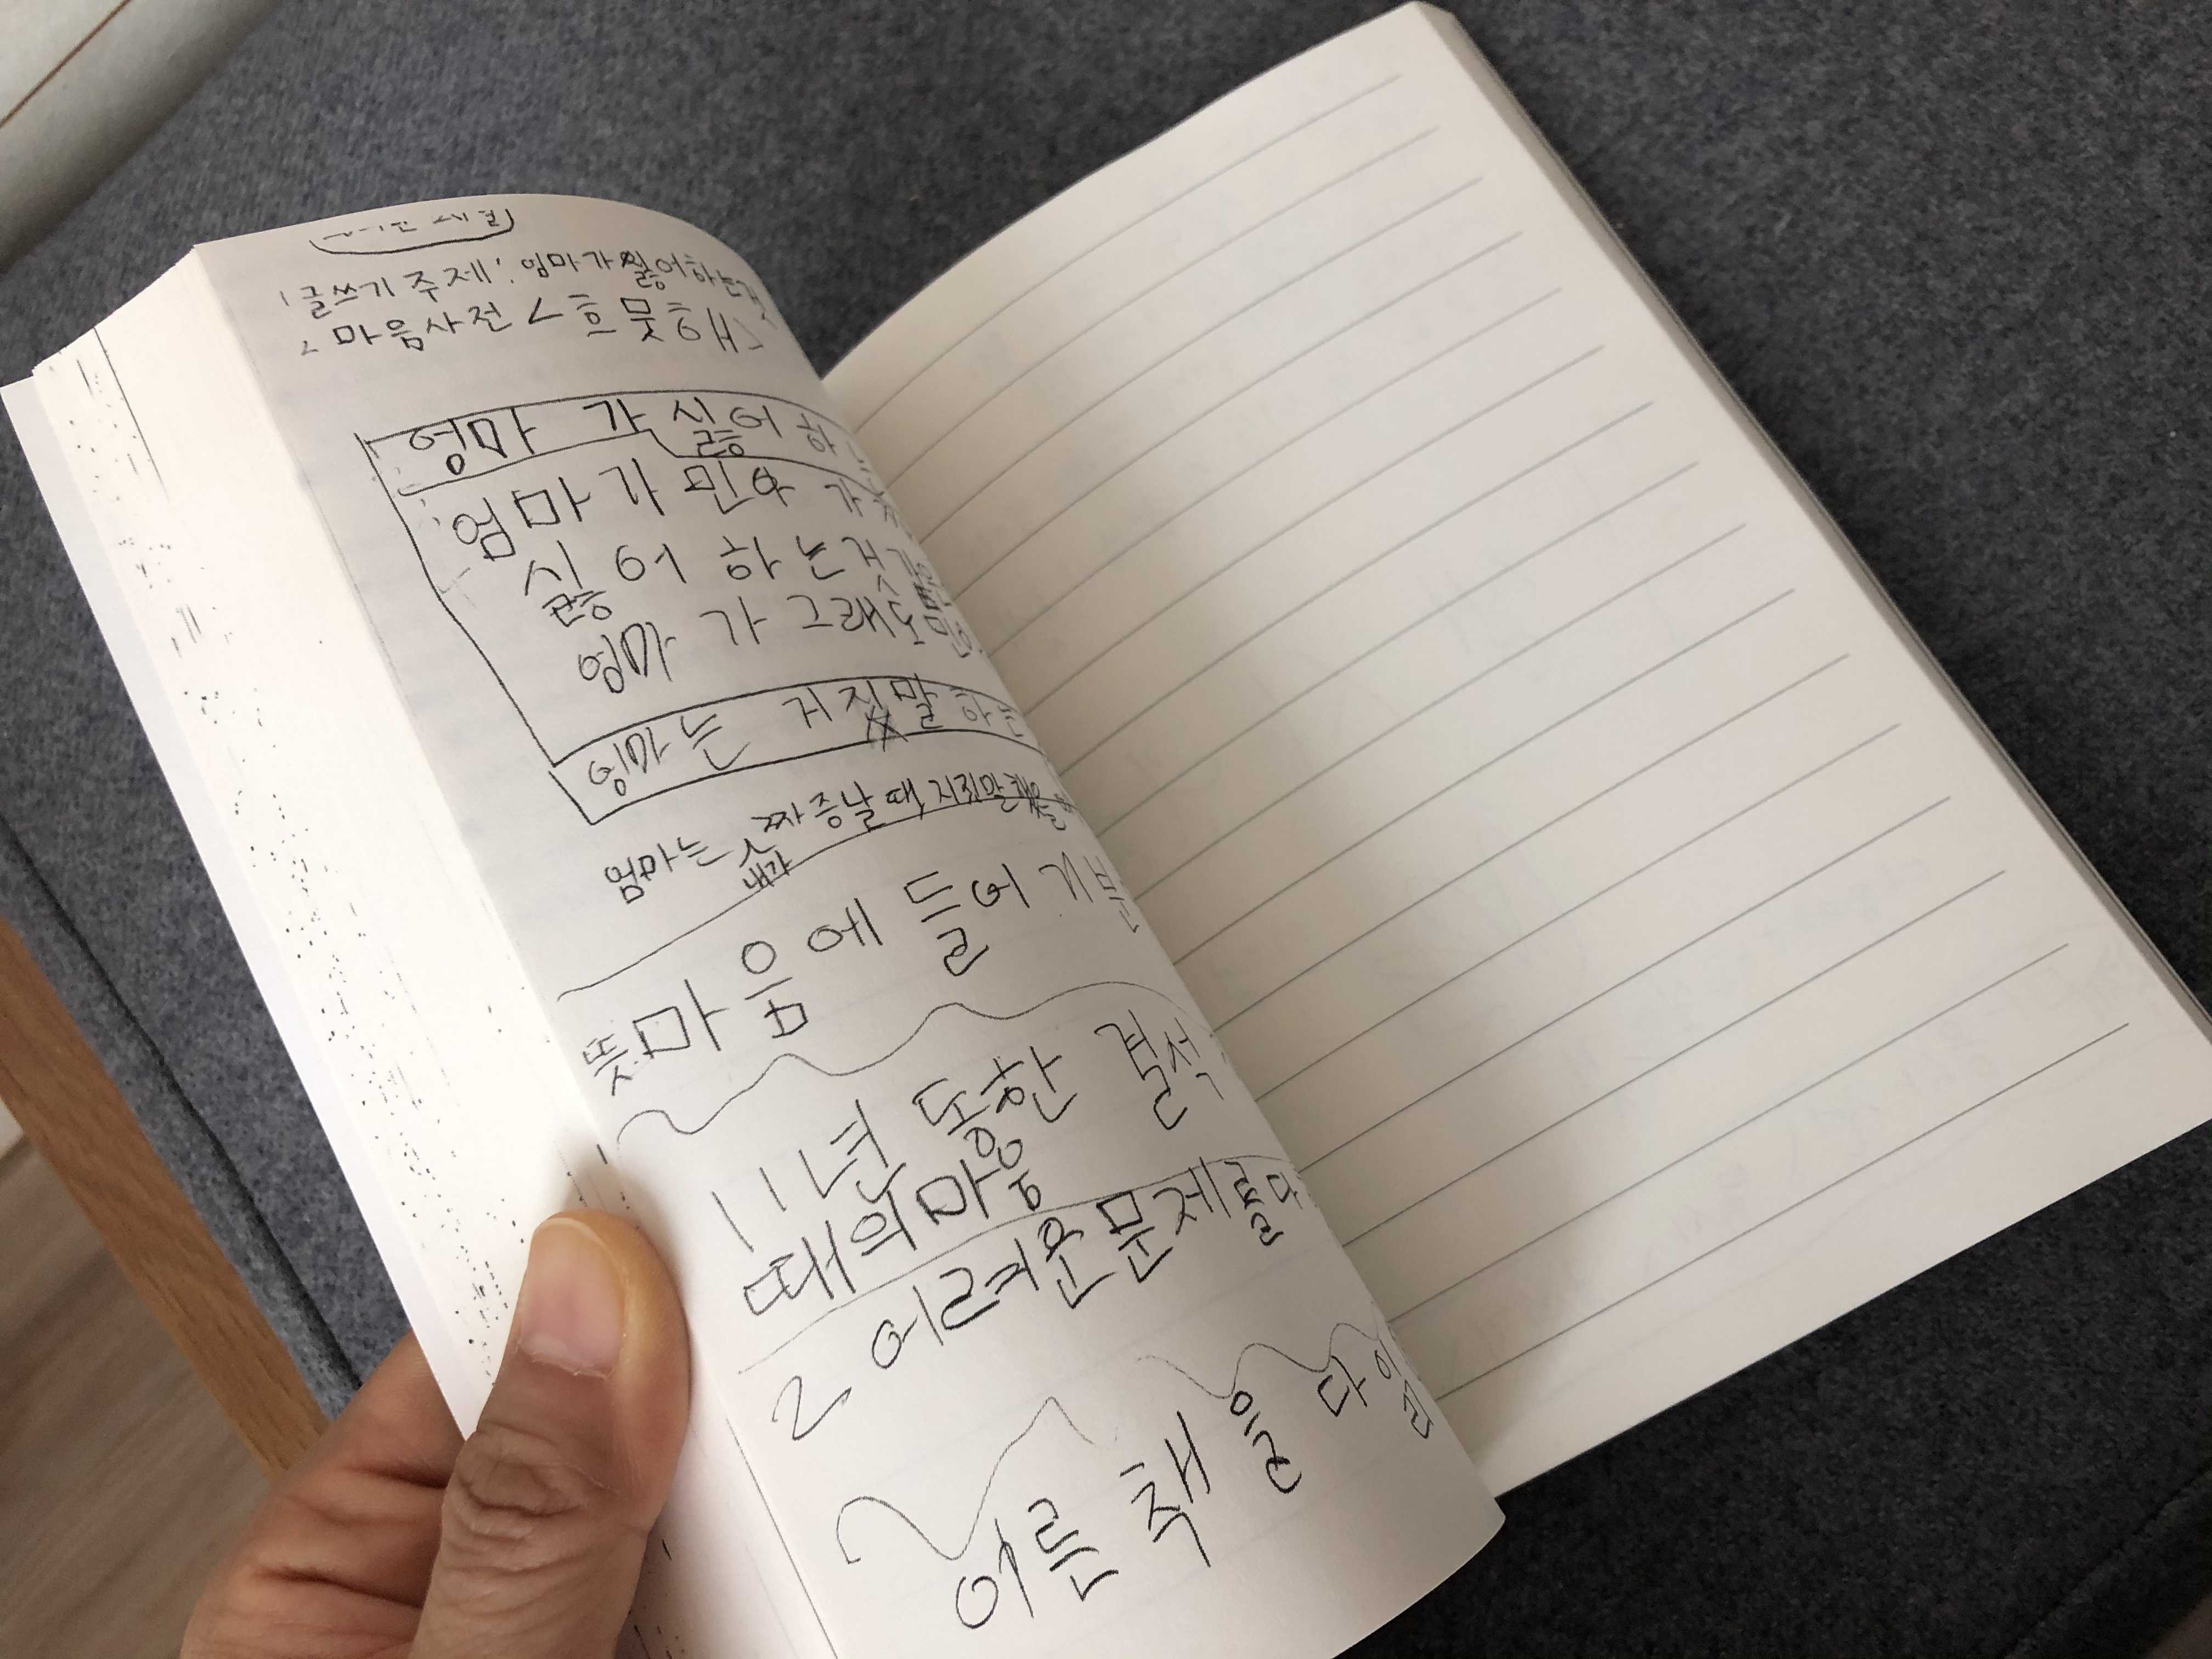 1 글쓰기 주제: 엄마가 싫어하는것
2 마음사전 <흐뭇해>
엄마 가 싫어 하
엄마가 민아 가
싫어 하는것
엄마 가 그래도
엄마는 거짓말 하는
엄마는 짜증날 때, 거짓말 했을
내가
뜻 마음에 들어 기분
1 1년 동안 결석
때의 마음
2 어려운 문제를 다
어른 책을 다 읽